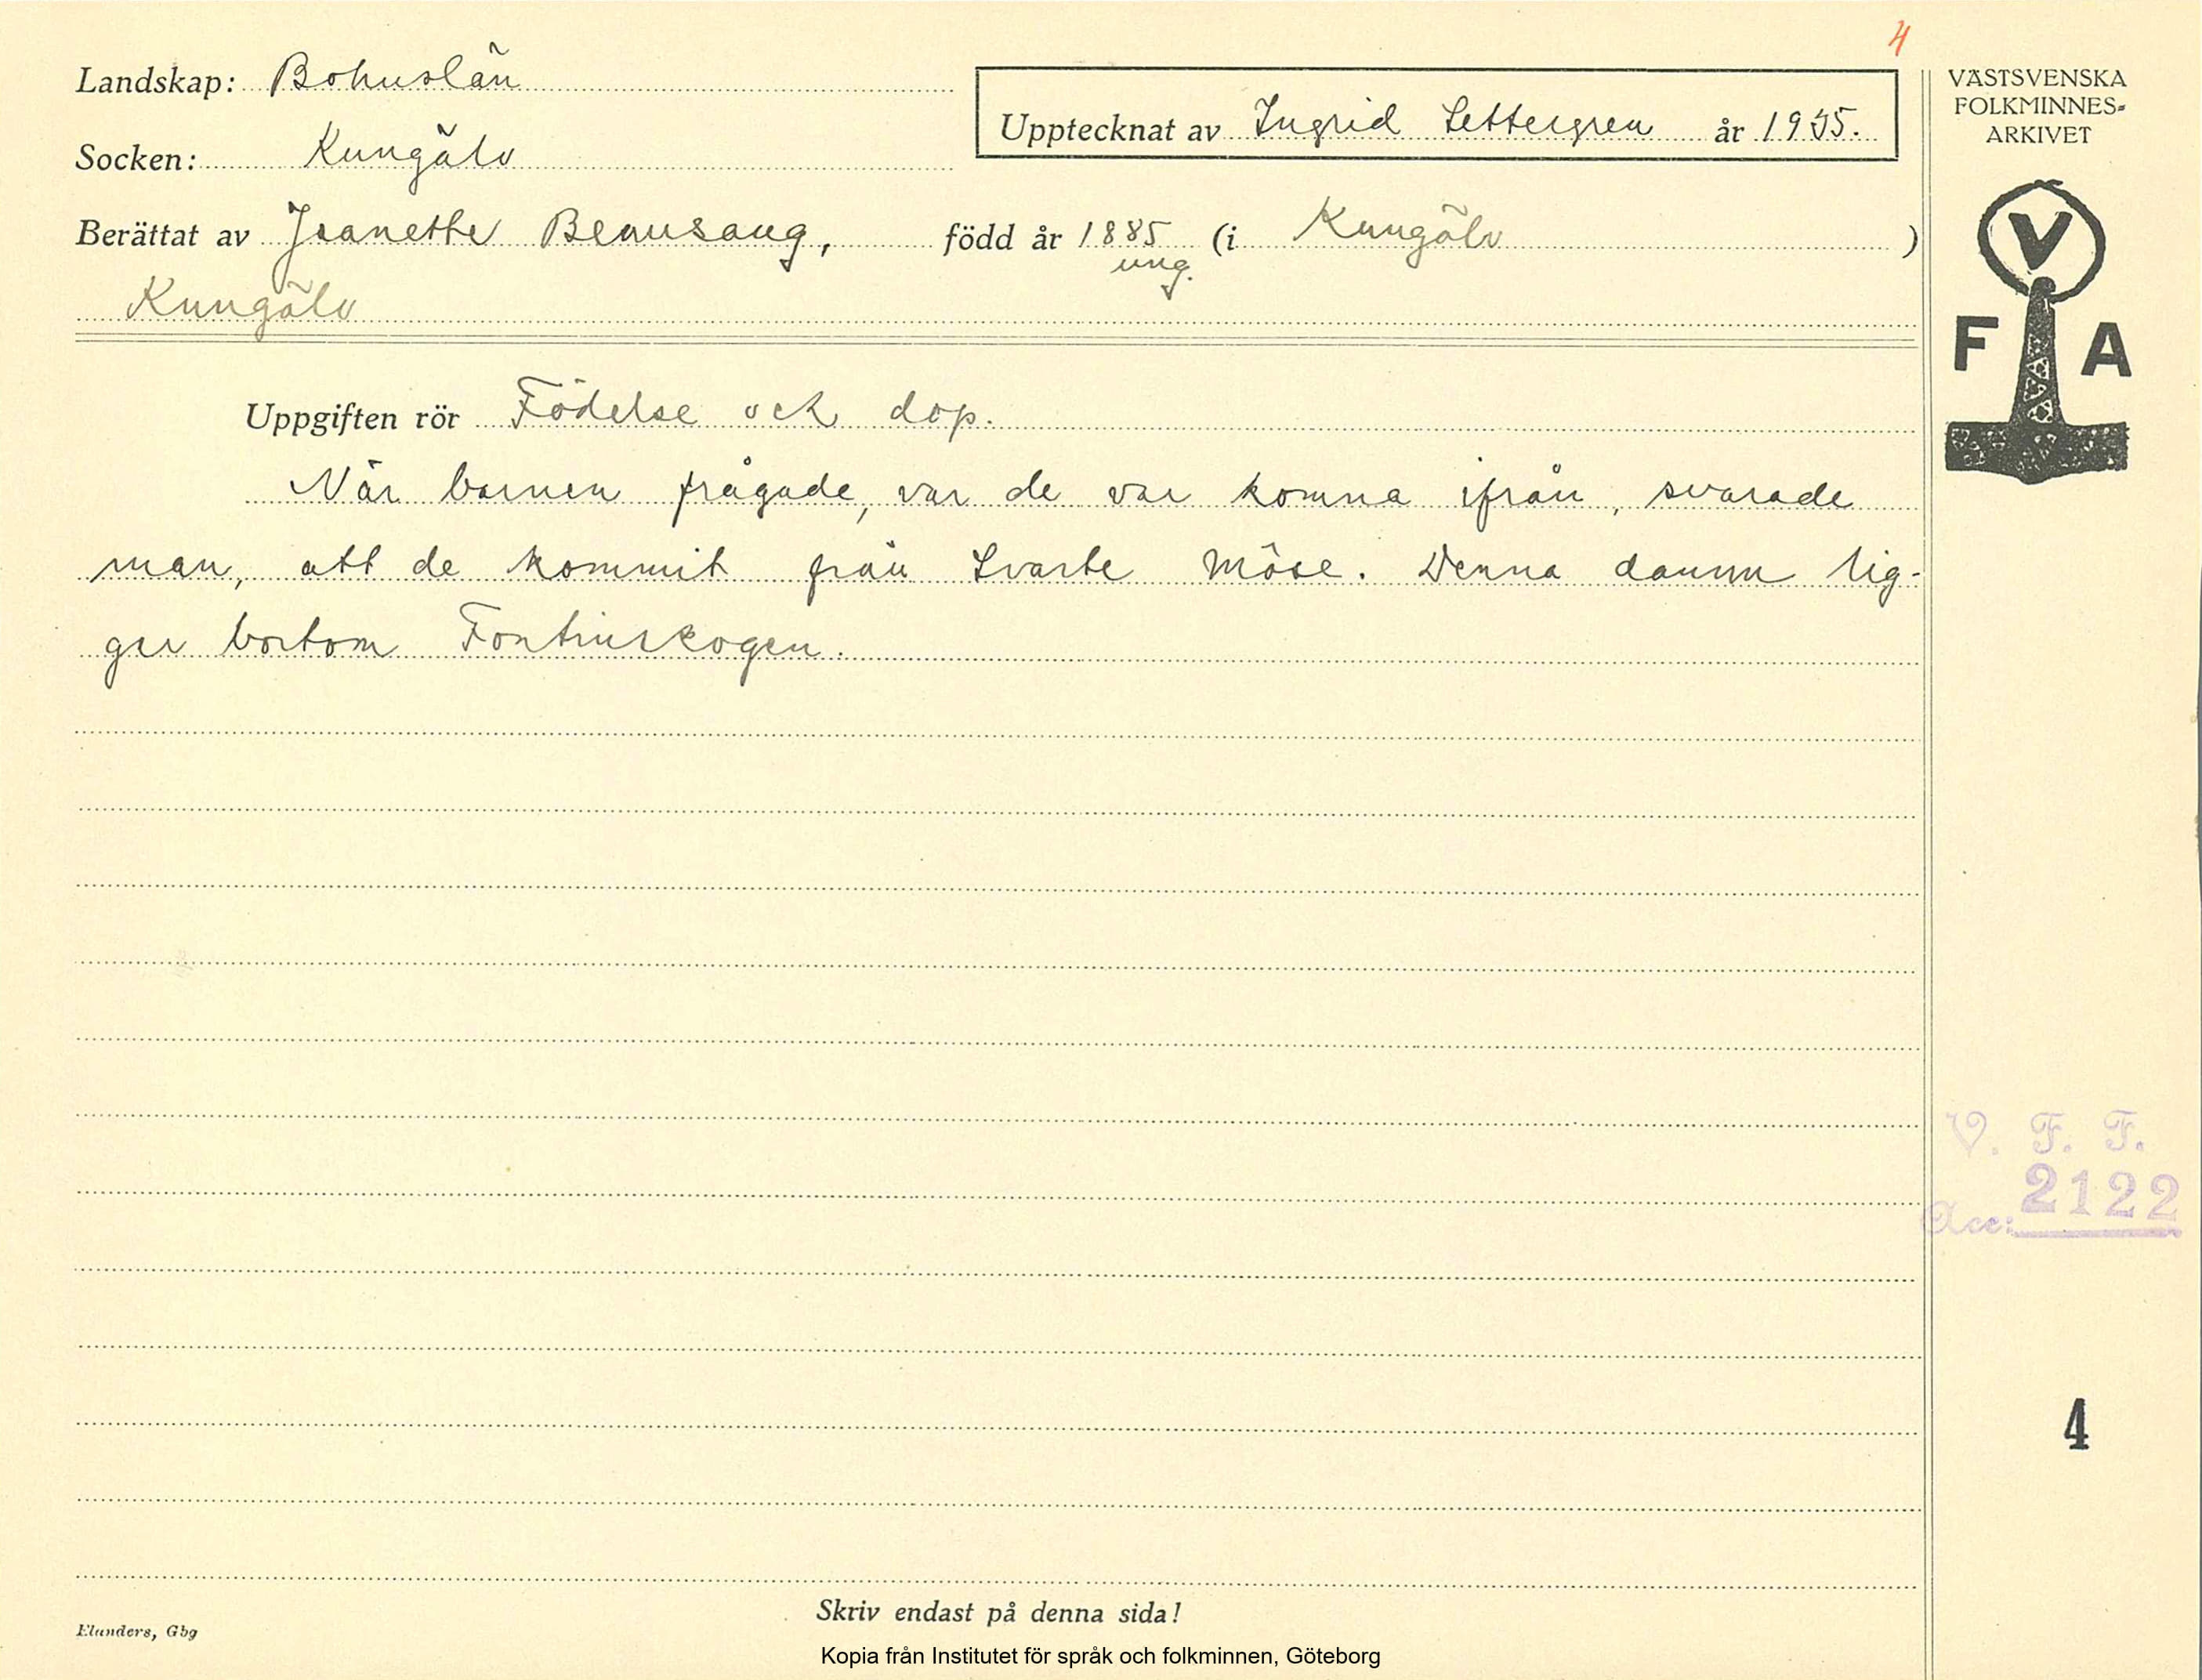 4
Landskap: Bohuslän
Upptecknat av Ingrid Settergren år 1935.
Socken: Kungälv
Berättat av Jeanette Beausang, född år 1885 (i Kungälv )
ung.
Kungälv
Uppgiften rör Födelse och dop.
När barnen frågade, var de var komna ifrån, svarade
man, att de kommit från Svarte Möse. Denna damm lig-
ger bortom Fontinskogen.
VÄSTSVENSKA
FOLKMINNES-
ARKIVET
V
F A
V. F. F.
Acc: 2122
4
Skriv endast på denna sida!
Elanders, Gbg
Kopia från Institutet för språk och folkminnen, Göteborg